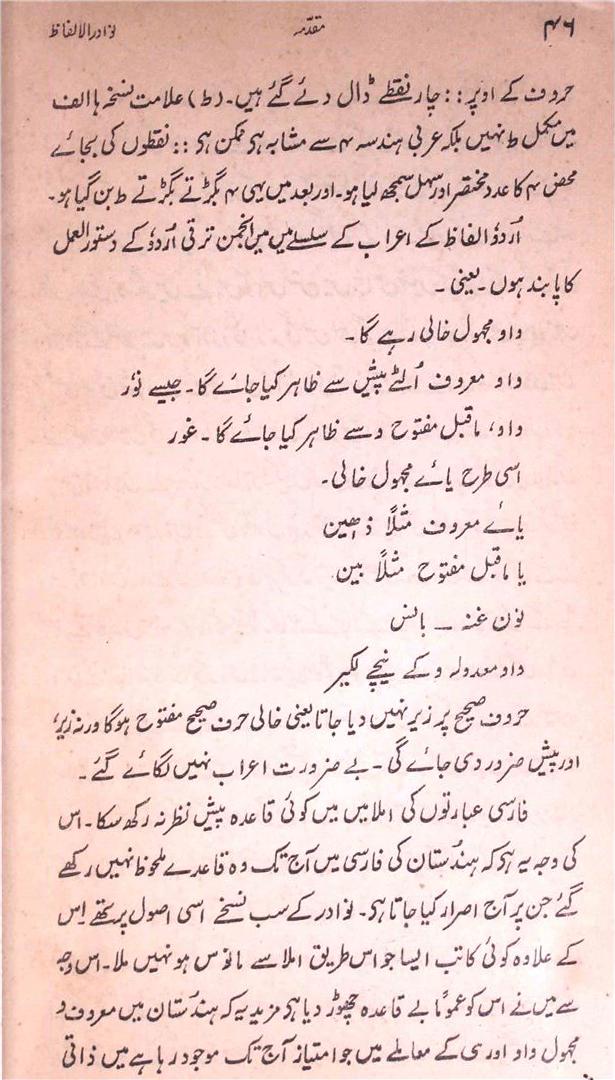 ۴۶ مقدّمہ نوادر الالفاظ
حروف کے اوپر :: چار نقطے ڈال دئے گئے ہیں۔ (ط) علامت نسخہ ہا الف
میں مکمل ط نہیں بلکہ عربی ہندسہ ۴ سے مشابہ ہی ممکن ہی :: نقطوں کی بجائے
محض ۴ کا عدد مختصر اور سہل سمجھ لیا ہو۔ اور بعد میں یہی ۴ بگڑتے بگڑتے ط بن گیا ہو۔
اُردوٗ الفاظ کے اعراب کے سلسلے میں میں انجمن ترقی اُردوٗ کے دستور العمل
کا پابند ہوں۔ یعنی۔
واو مجہول خالی رہے گا۔
واو معروف اُلٹے پیش سے ظاہر کیا جائے گا۔ جیسے نوٗر
واو، ماقبل مفتوح وسے ظاہر کیا جائے گا۔ غور
اسی طرح یائے مجہول خالی۔
یائے معروف مثلاً ذہین
یا ماقبل مفتوح مثلاً بین
نون غنہ ــ بانس
واو معدولہ و کے نیچے لکیر
حروف صحیح پر زبر نہیں دیا جاتا یعنی خالی حرف صحیح مفتوح ہوگا ورنہ زیر،
اور پیش ضرور دی جائے گی۔ بے ضرورت اعراب نہیں لگائے گئے۔
فارسی عبارتوں کی املا میں میں کوئی قاعدہ پیش نظر نہ رکھ سکا۔ اس
کی وجہ یہ ہی کہ ہندُستان کی فارسی میں آج تک وہ قاعدے ملحوظ نہیں رکھے
گئے جن پر آج اصرار کیا جاتا ہی۔ نوادر کے سب نسخے اسی اصول پر تھے اِس
کے علاوہ کوئی کاتب ایسا جو اس طریق املا سے مانوس ہو نہیں ملا۔ اس وجہ
سے میں نے اس کو عموماً بے قاعدہ چھوڑ دیا ہی مزید یہ کہ ہندُستان میں معروف و
مجہول واو اور ی کے معاملے میں جو امتیاز آج تک موجود رہا ہے میں ذاتی